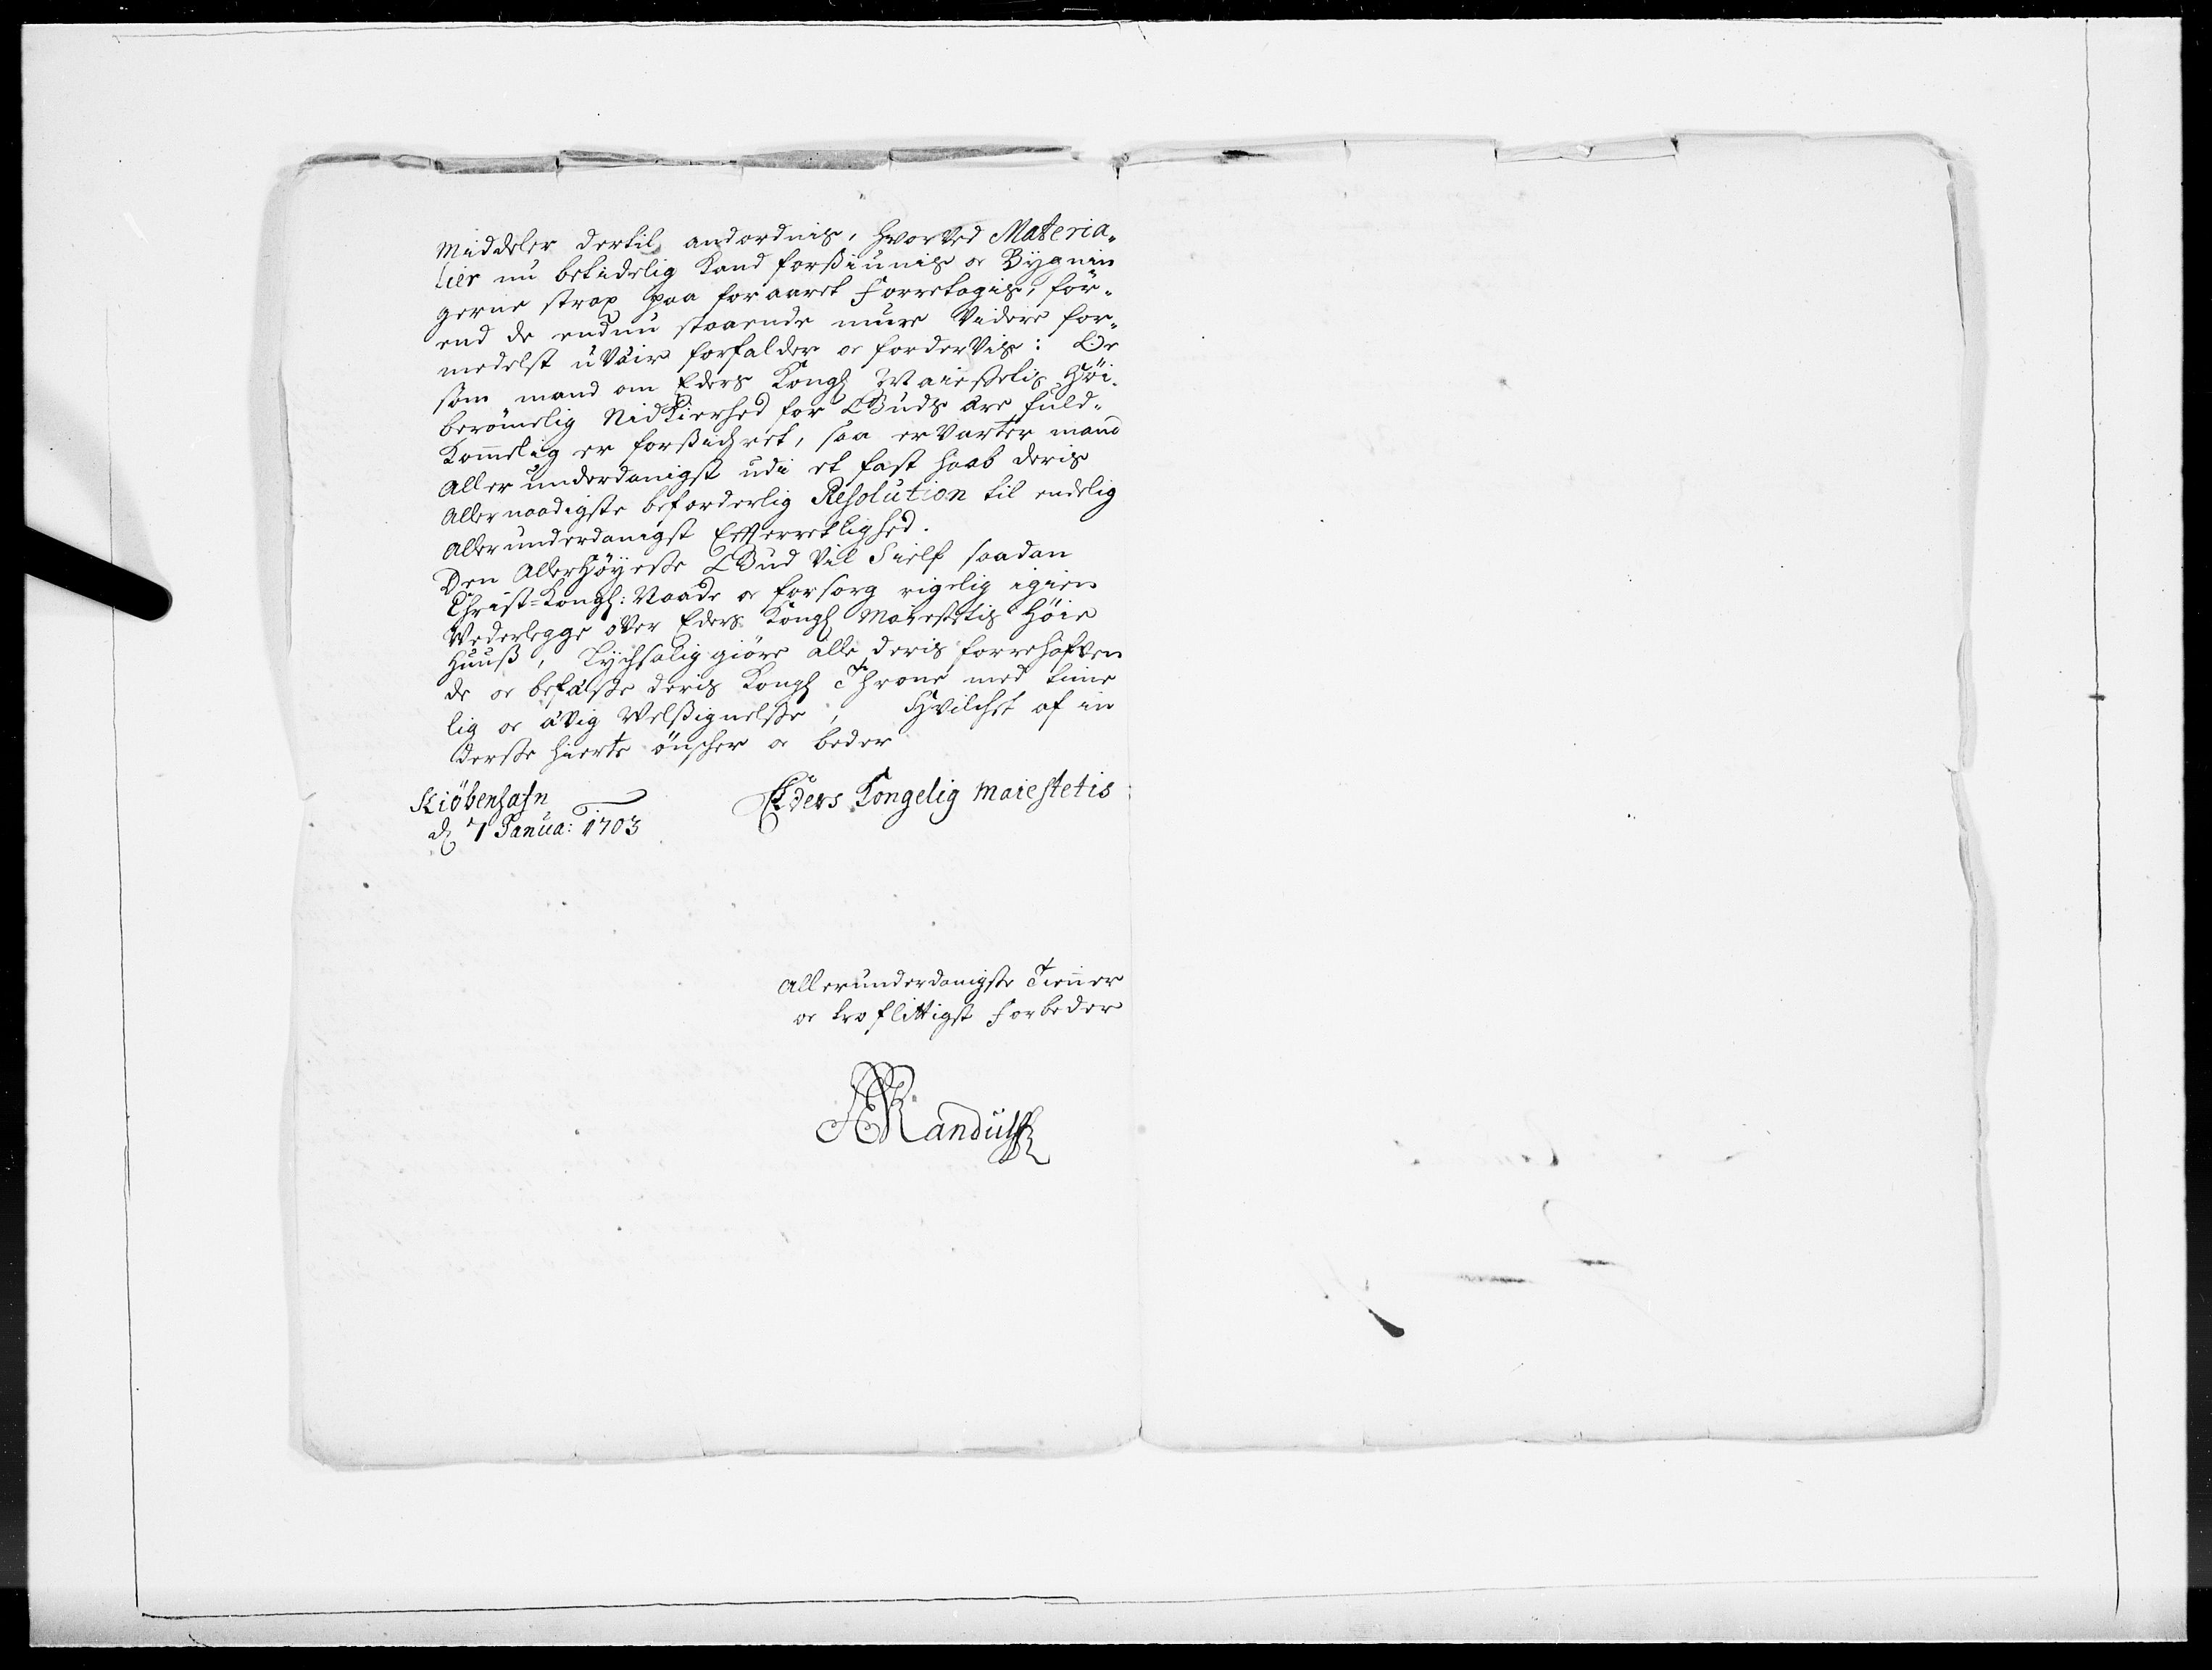 Middeler dertil andordnis, hvorved Materia„
lier nu betidelig kand forßiunis oc Bygnin
gerne strax paa foraaret foretagis, för„
end de endnu staaende mure videre for„
medelst üväir forfalder oc fordervis: Oc
som mand om Eders Kongl Maiestetis Höi„
berömelig Nidkierhed for Guds Äre fuld„
kommelig er forßichret, saa ervarter mand
Allerunderdanigst udi et fast haab deris
Allernaadigste beforderlig Resolution til endelig
Allerunderdanigst Efterretlighed.
Den AllerHöyeste Gud vil Sielf saadan
Christ-Kongl: Naade oc forsorg rigelig igien
Vederlegge over Eders Kongl Maiestetis Höie
Huuß, Lychsalig giöre alle deris forrehafven
de oc befäste deris Kongl Throne med time
lig oc ävig Velßignelße, Hvilchet af in
derste hierte önscher oc beder
Kiöbenhafn
d. 7 Janua: 1703
Eders Kongelig Maiestetis
Allerunderdanigste Tienner
oc troflittigst forbeder
Randulf